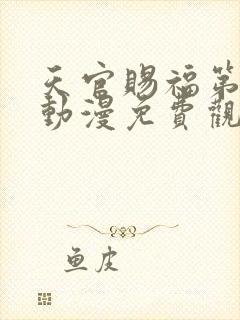 天官賜福第
動漫免費觀
鱼皮